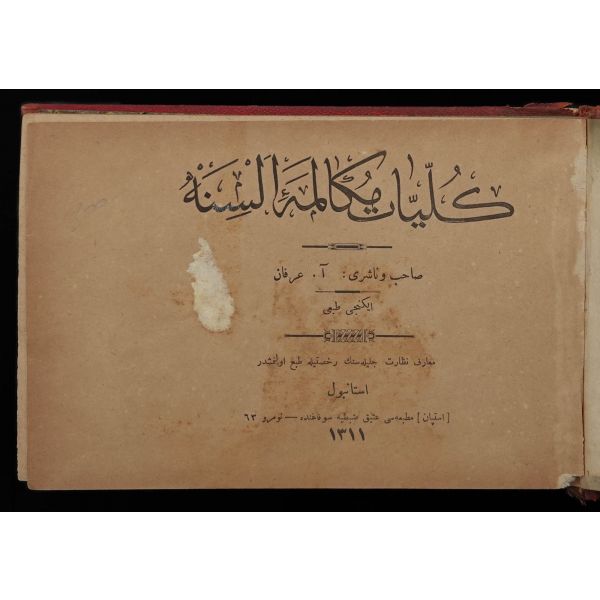 كُلّيّات مُكالمۀ اَلسِنَه
صاحب و ناشرى : آ . عرفان
ايكنجى طبعى
معارف نظارت جليله‌سنك رخصتيله طبع اولنمشدر
استانبول
[ استپان ] مطبعه‌سى عتيق ضبطيه سوقاغنده — نومرو ٦٣
١٣١١